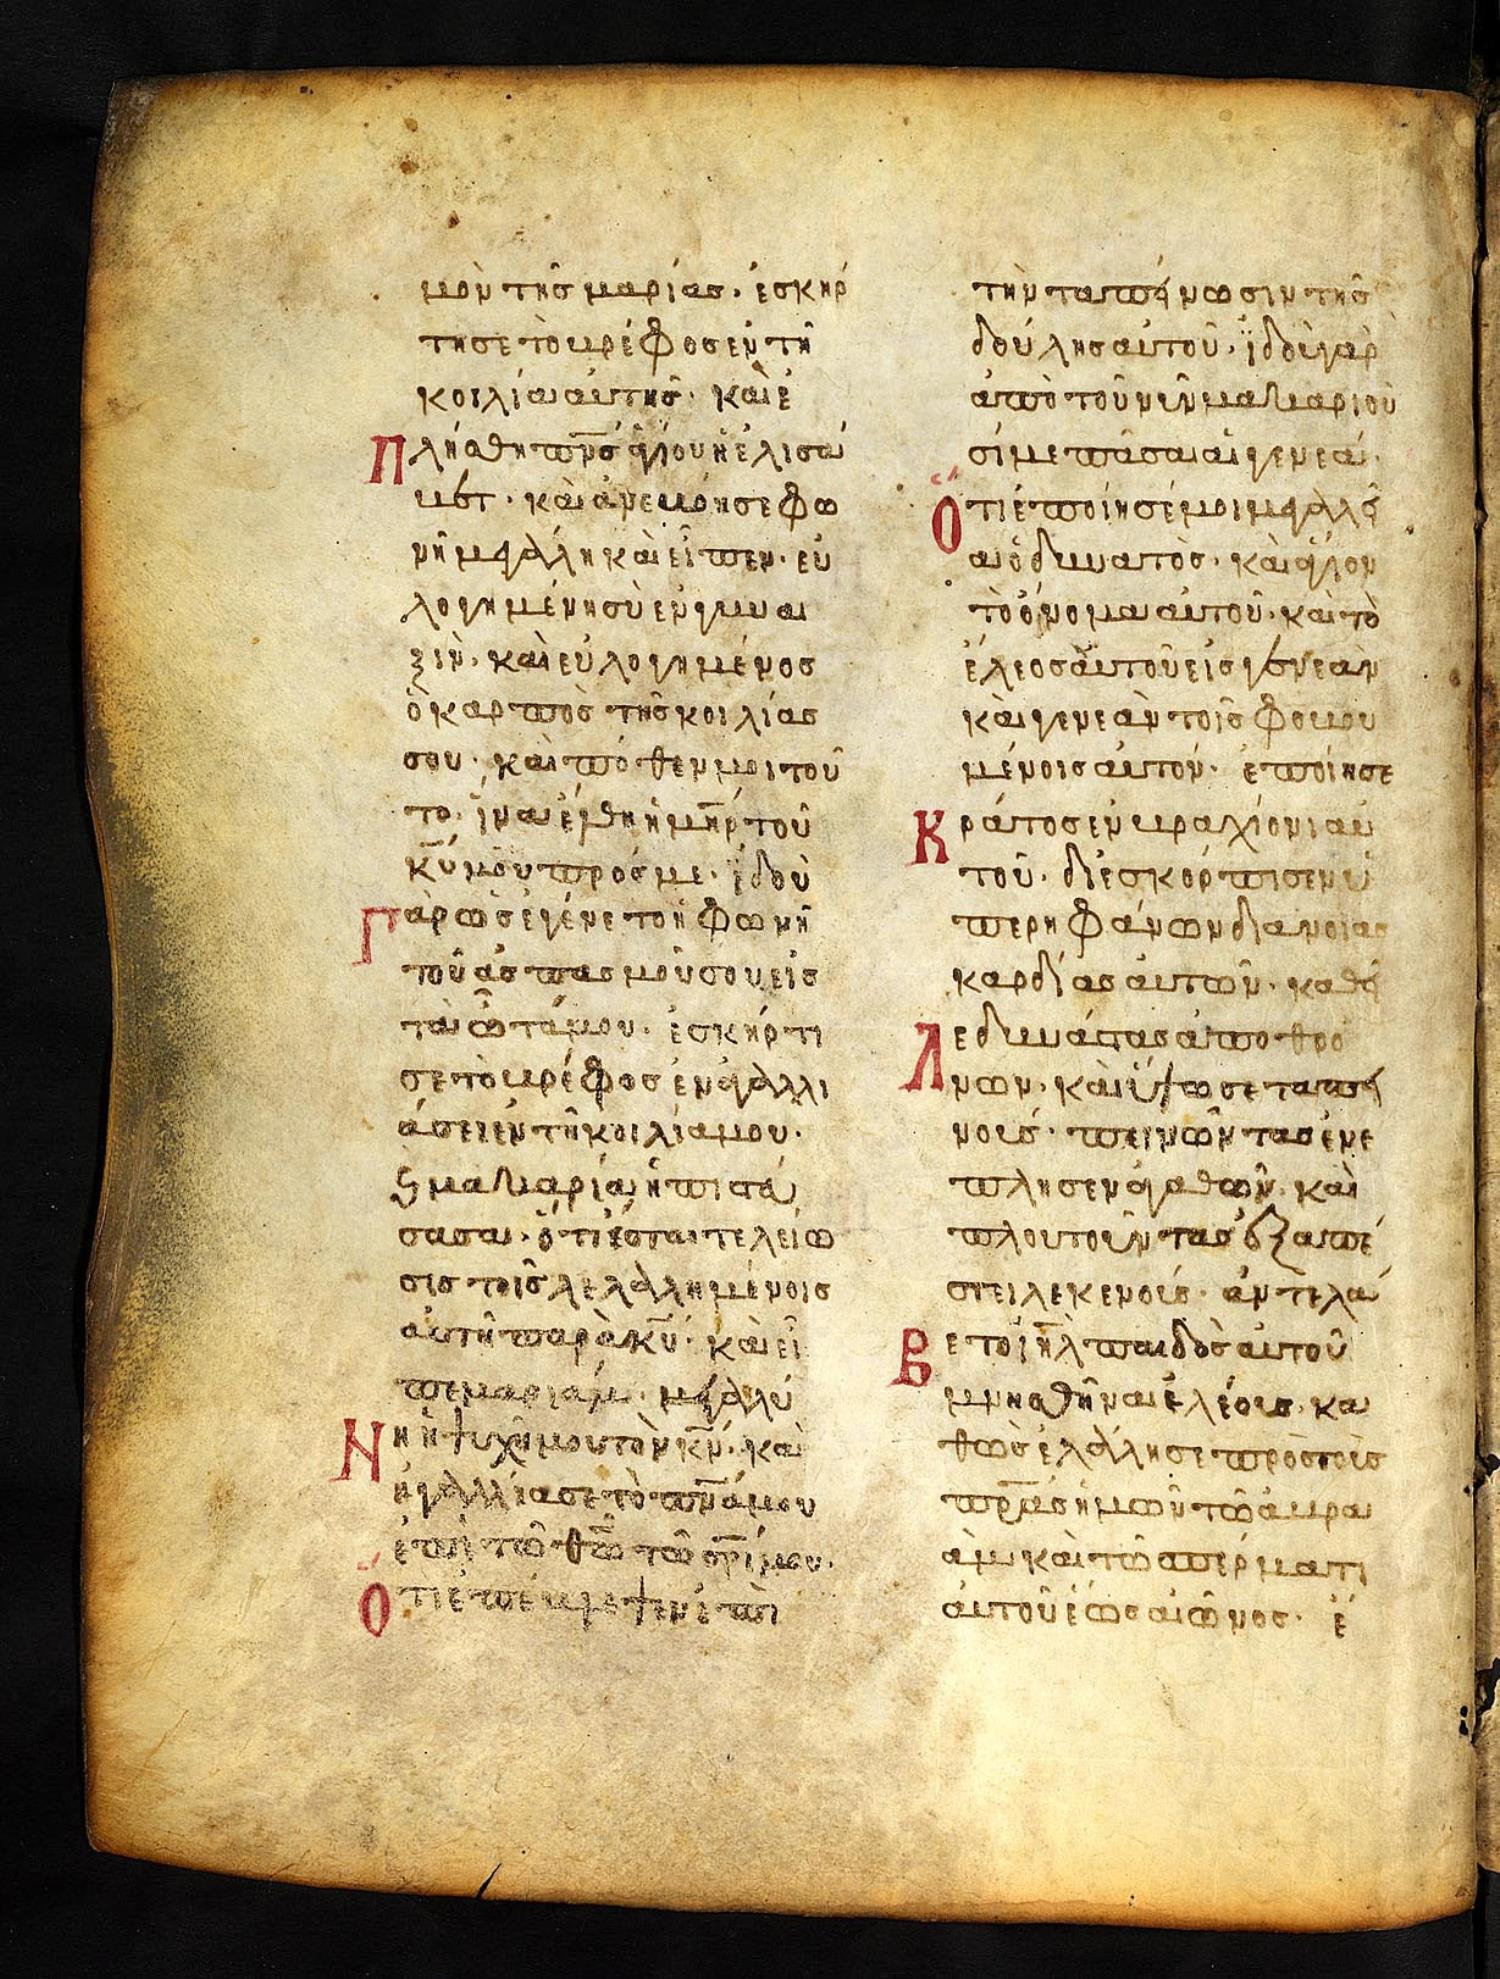 μὸν τῆς μαρίας· ἐσκίρ
τησε τὸ βρέφος ἐν τῆ
κοιλία αὐτῆς· καὶ ἐ
πλήσθη πνς ἁγίου ἡ ἐλισά
βετ· καὶ ἀνεβόησε φω
νῆ μεγάλη καὶ εἶπεν· εὐ
λογημένη σὺ ἐν γυναι
ξὶν· καὶ εὐλογημένος
ὁ καρπὸς τῆς κοιλίας
σου· καὶ πόθεν μοι τοῦ
το· ἵνα ἔλθη ἡ μηρ τοῦ
κυ μου πρός με· ἰδοὺ
γὰρ ὡς ἐγένετο ἡ φωνὴ
τοῦ ἀσπασμοῦ σου εἰς
τὰ ὦτά μου· ἐσκίρτη
σε τὸ βρέφος ἐν ἀγαλλι
άσει ἐν τῆ κοιλία μου·
ϛ μακαρία ἡ πιστεύ
σασα· ὅτι ἔσται τελείω
σις τοῖς λελαλημένοις
αὐτῆ παρὰ κυ· καὶ εἶ
πε μαριάμ· μεγαλύ
νη ἡ ψυχή μου τὸν κν· καὶ
ἠγαλλίασε τὸ πνα μου
ἐπὶ τῶ θω τῶ σρι μου·
Ὅτι ἐπέβλεψεν ἐπὶ
τὴν ταπείνωσιν τῆς
δούλης αὐτοῦ· ἰδοὺ γὰρ
ἀπὸ τοῦ νῦν μακαριοῦ
σί με πᾶσαι αἱ γενεαί·
Ὅτι ἐποίησέ μοι μεγαλεῖ
α ὁ δυνατὸς· καὶ ἅγιον
τὸ ὄνομα αὐτοῦ· καὶ τὸ
ἔλεος αὐτοῦ εἰς γενεὰν
καὶ γενεὰν τοῖς φοβου
μένοις αὐτόν· ἐποίησε
Κράτος ἐν βραχίονι αὐ
τοῦ· διεσκόρπισεν ὑ
περηφάνων διανοίας
καρδίας αὐτῶν· καθεῖ
Λε δυνάστας ἀπὸ θρό
νων· καὶ ὕψωσε ταπει
νούς· πεινῶντας ἐνέ
πλησεν ἀγαθῶν· καὶ
πλουτοῦντας ἐξαπέ
στειλε κενούς· ἀντελά
Βετο ιηλ παιδὸς αὐτοῦ
μνησθῆναι ἐλέους· κα
θὼς ἐλάλησε πρὸς τοὺς
πρας ἡμῶν τῶ ἀβρα
ὰμ καὶ τῶ σπέρματι
αὐτοῦ ἕως αἰῶνος· ἔ